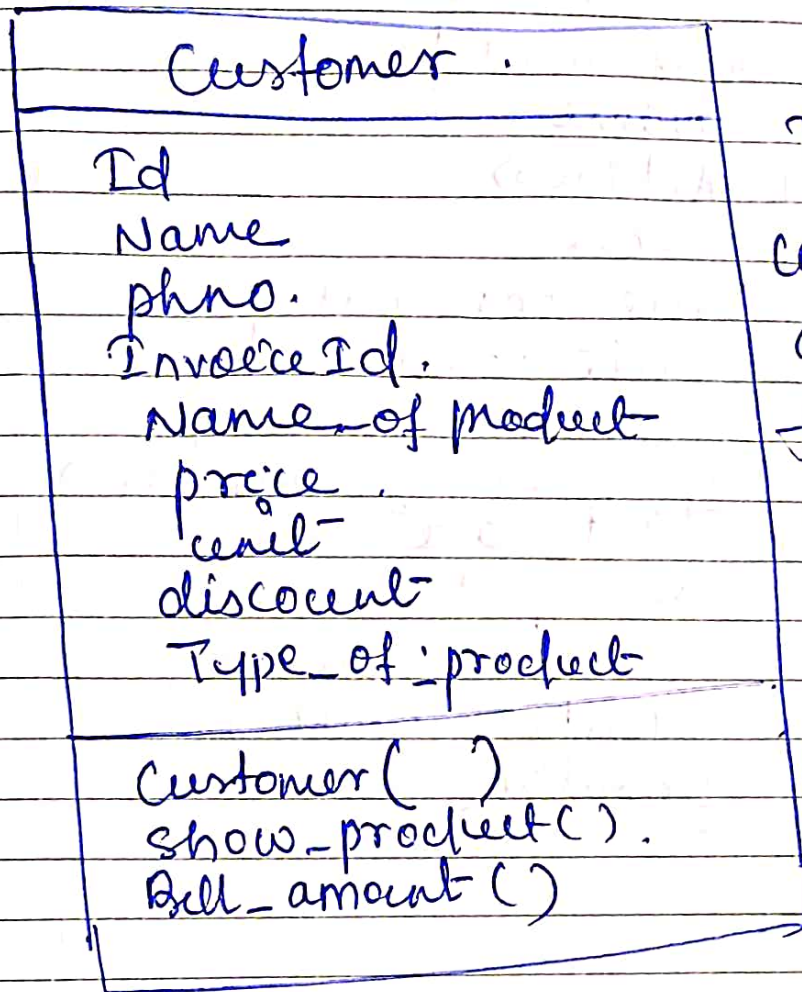 Customer.
Id
Name
phno.
Invoice Id.
Name_of product
price.
unit
discount
Type_of_product
Customer( )
show_product().
Bill_amount()